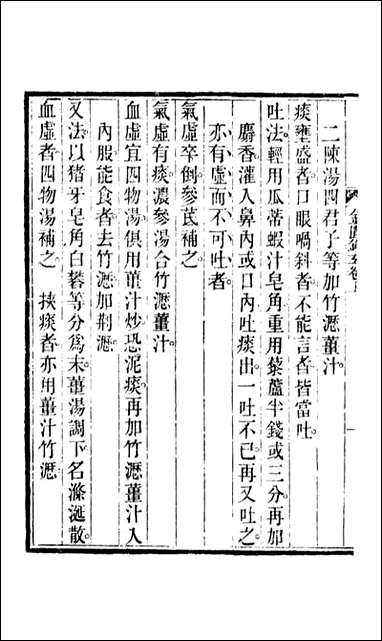 二陳湯四君子等加竹瀝薑汁
痰壅盛者口眼喎斜者不能言者皆當吐
吐法輕用瓜蒂蝦汁皂角重用藜蘆半錢或三分再加
麝香灌入鼻內或口內吐痰出一吐不已再又吐之
亦有虛而不可吐者
氣虛卒倒參芪補之
氣虛有痰濃參湯合竹瀝薑汁
血虛宜四物湯俱用薑汁炒恐泥痰再加竹瀝薑汁入
內服能食者去竹瀝加荆瀝
又法以猪牙皂角白礬等分爲末薑湯調下名滌涎散
血虛者四物湯補之　挾痰者亦用薑汁竹瀝